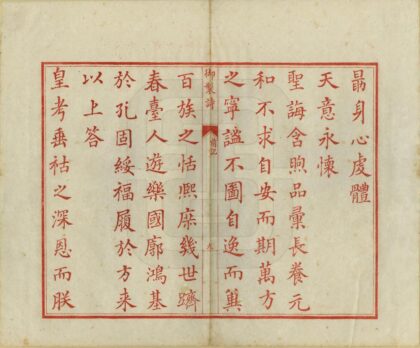 勗身心處體
天意永懷
聖誨含煦品彙長養元
和不求自安而期萬方
之寧謐不圖自逸而冀
御製詩
百族之恬熙庶幾世躋
春臺人遊樂國廓鴻基
於孔固綏福履於方来
以上答
皇考垂祜之深恩而朕